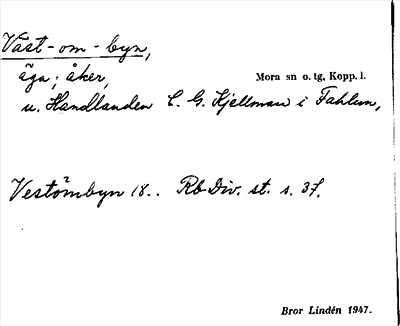 Väst-om-byn,
äga, åker,
Mora sn o. tg, Kopp. l.
u. Handlanden C. G. Kjellman i Fahlun,
Vestômbyn 18.. Rb Div. st. s. 37.
Bror Lindén 1947.